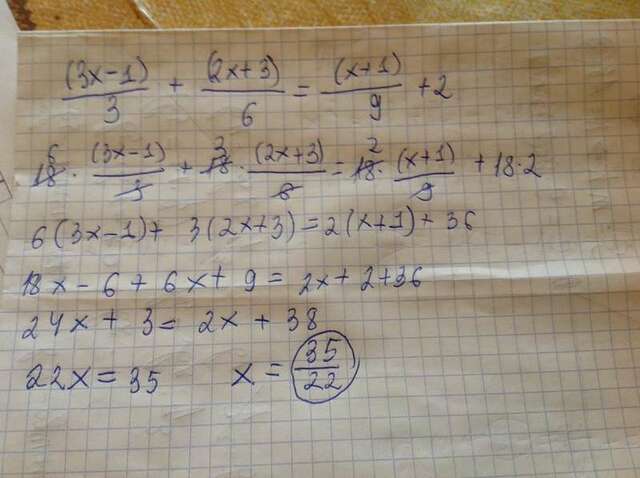 (3x-1)/3 + (2x+3)/6 = (x+1)/9 + 2
6 3 2
18 · (3x-1)/3 + 18 · (2x+3)/6 = 18 · (x+1)/9 + 18·2
6(3x-1)+ 3(2x+3)=2(x+1)+ 36
18x - 6 + 6x + 9 = 2x + 2 + 36
24x + 3 = 2x + 38
22x = 35 x = 35/22